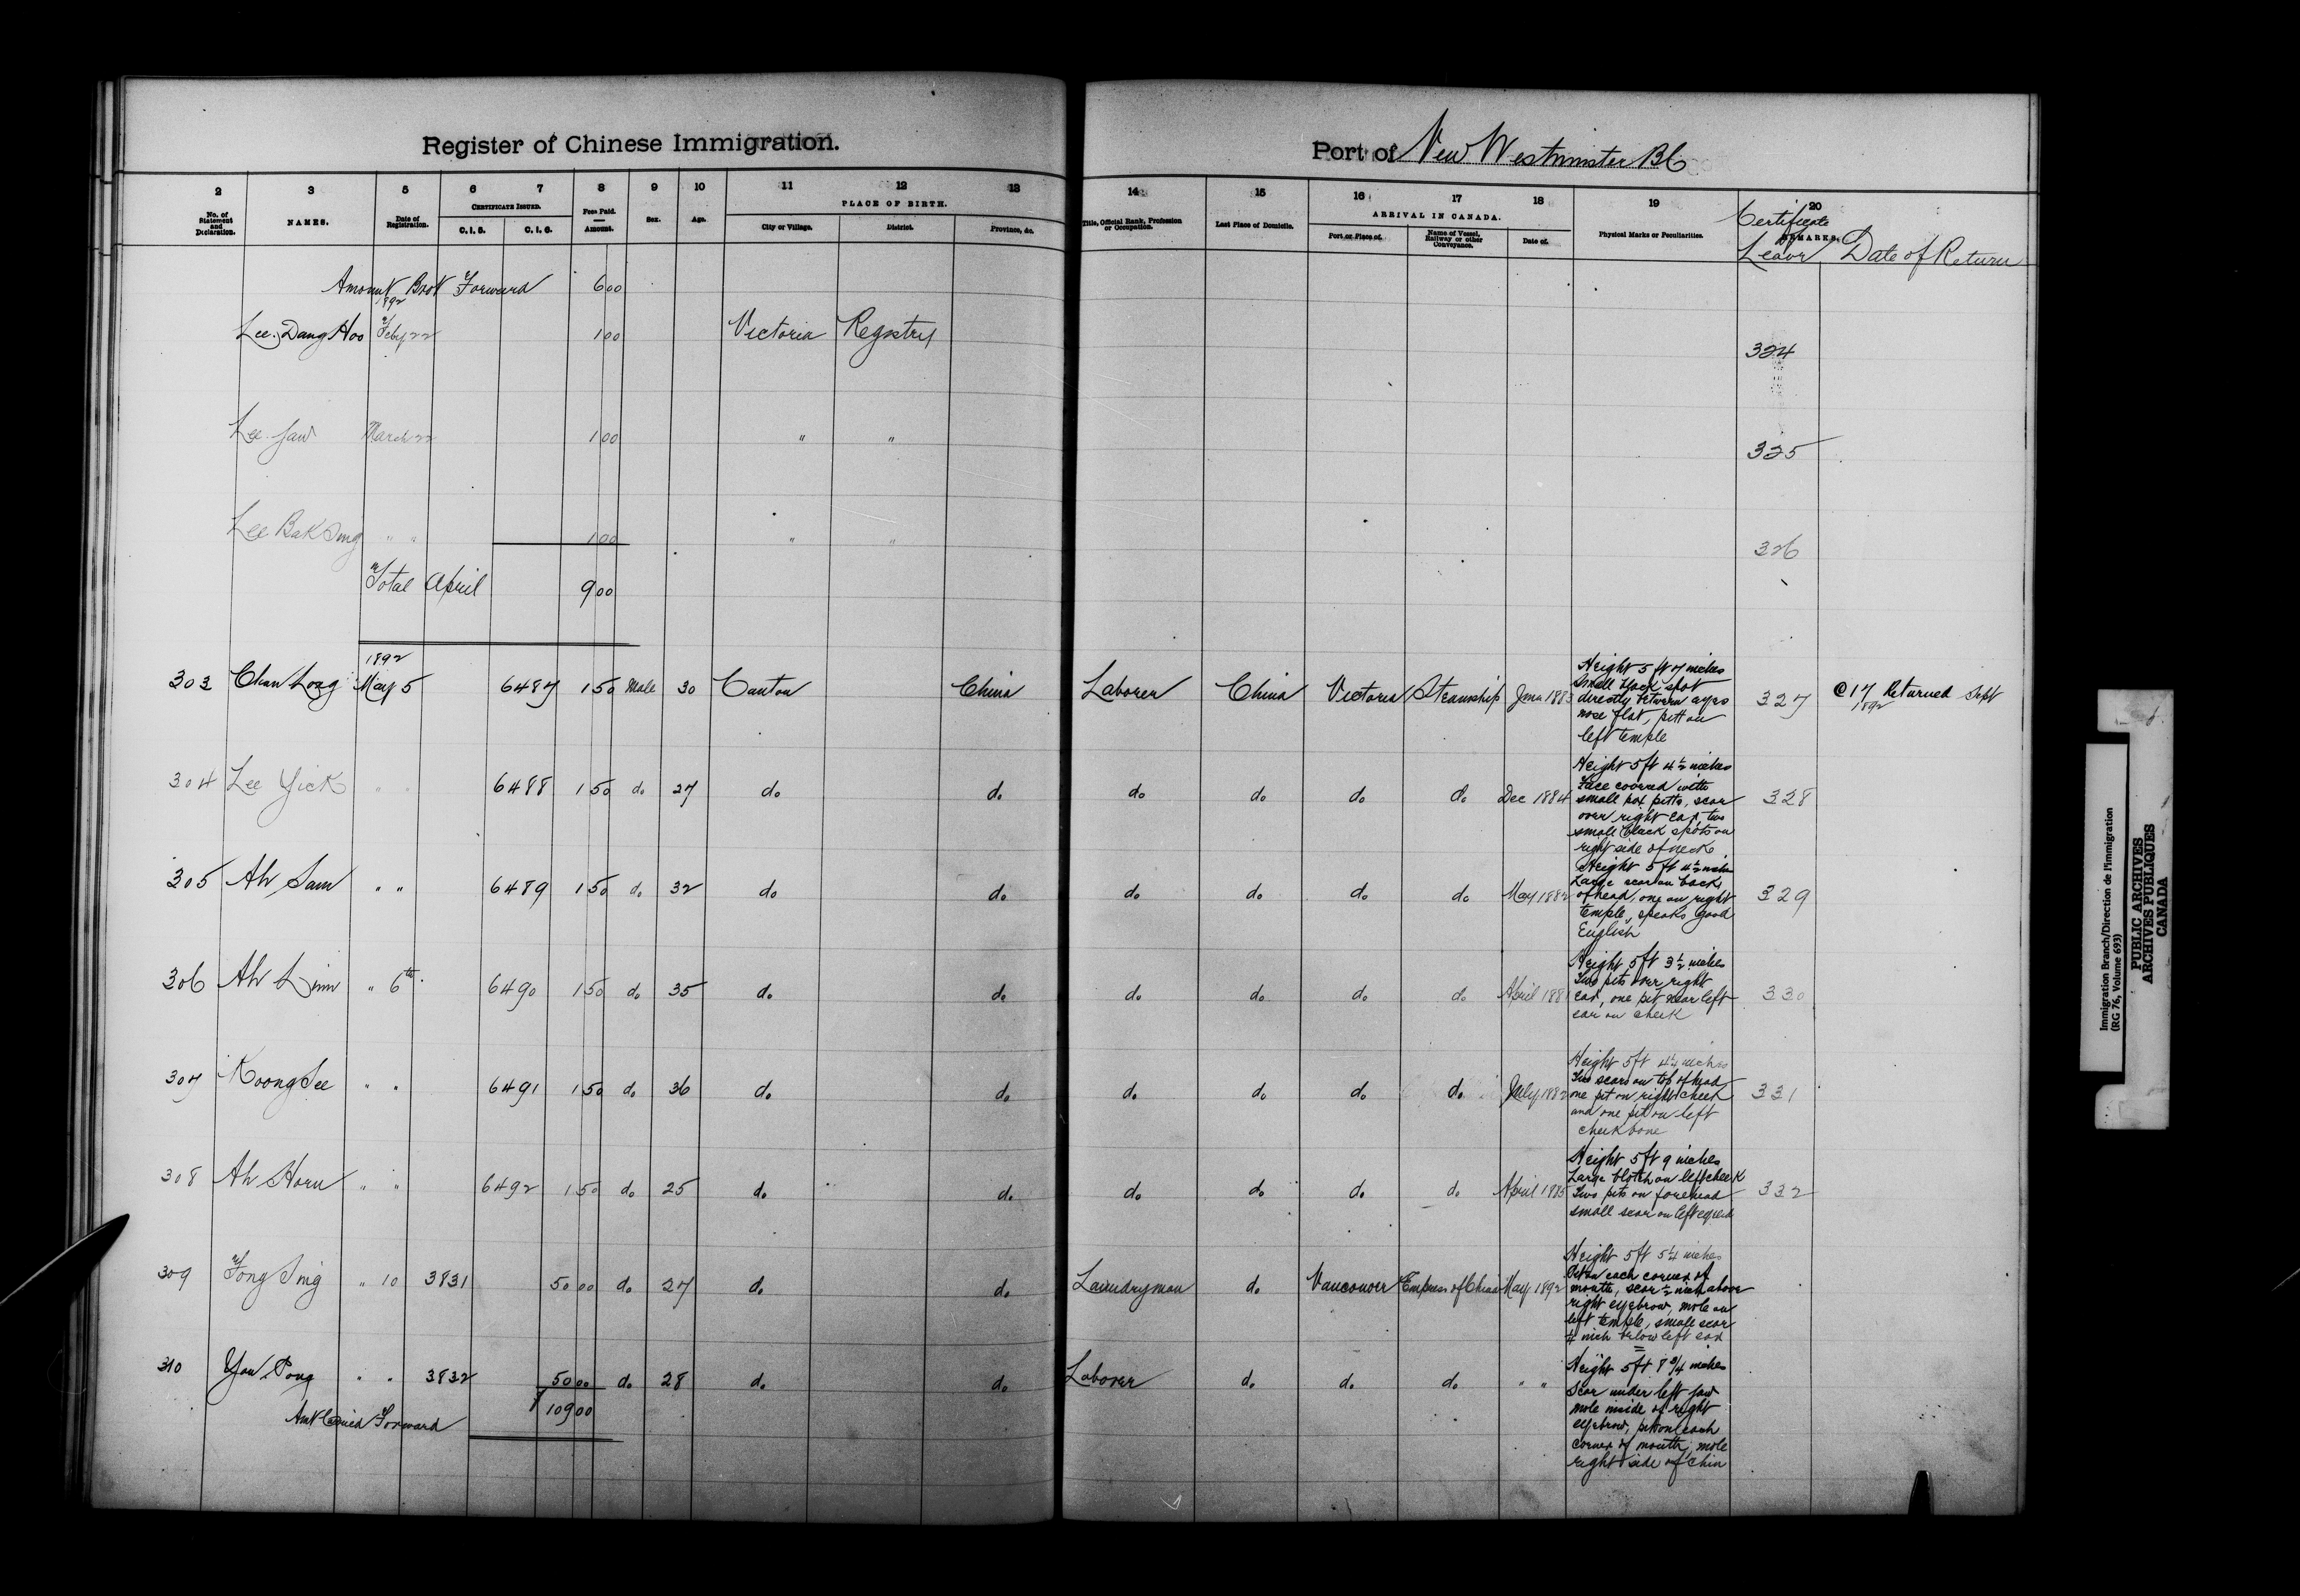 Register of Chinese Immigration.
Port of New Westminster BC
2 3 5 6 7 8 9 10 11 12 13 14 15 16 17 18 19 20
No. of Statement and Declaration. NAMES. Date of Registration. CERTIFICATE ISSUED. C. I. 5. C. I. 6. Fees Paid. Amount. Sex. Age. PLACE OF BIRTH. City or Village. District. Province, &c. Title, Official Rank, Profession or Occupation. Last Place of Domicile. ARRIVAL IN CANADA. Port or Place of. Name of Vessel, Railway or other Conveyance. Date of. Physical Marks or Peculiarities. REMARKS.
Certificate Leave Date of Return
Amount Brot Forward 6 00
1892
Lee Dang Hoo Feby 22 1 00 Victoria Registry 324
Lee Jaw March 22 1 00 " " 325
Lee Bak Sing " " 1 00 " " 326
Total April 9 00
1892
303 Chan Long May 5 6487 1 50 Male 30 Canton China Laborer China Victoria Steamship June 1883 327 @ 17 Returned Sept 1892
Height 5 ft 7 inches
Small black spot
directly between eyes
nose flat, pitt on
left temple
304 Lee Yick " " 6488 1 50 do 27 do do do do do do Dec 1884 328
Height 5 ft 4 1/2 inches
Face covered with
small pox pitts, scar
over right ear, two
small black spots on
right side of neck
305 Ah Sam " " 6489 1 50 do 32 do do do do do do May 1882 329
Height 5 ft 4 1/2 inches
Large scar on back
of head, one on right
temple, speaks good
English
306 Ah Linn " 6th 6490 1 50 do 35 do do do do do do April 1881 330
Height 5 ft 3 1/2 inches
Two pits over right
ear, one pit near left
ear on cheek
307 Koong See " " 6491 1 50 do 36 do do do do do do July 1882 331
Height 5 ft 4 1/4 inches
Two scars on top of head
one pit on right cheek
and one pit on left
cheek bone
308 Ah Horn " " 6492 1 50 do 25 do do do do do do April 1885 332
Height 5 ft 9 inches
Large blotch on left cheek
Two pits on forehead
small scar on left eyelid
309 Fong Sing " 10 3831 50 00 do 27 do do Laundryman do Vancouver Empress of China May 1892
Height 5 ft 5 1/4 inches
Pit on each corner of
mouth, scar 1/2 inch above
right eyebrow, mole on
left temple, small scar
1/4 inch below left ear
310 Yow Pong " " 3832 50 00 do 28 do do Laborer do do do " "
Height 5 ft 8 3/4 inches
Scar under left jaw
mole inside of right
eyebrow, pit on each
corner of mouth, mole
right side of chin
Amt Carried Forward 109 00
Immigration Branch/Direction de l'immigration
(RG 76, Volume 693)
PUBLIC ARCHIVES
ARCHIVES PUBLIQUES
CANADA